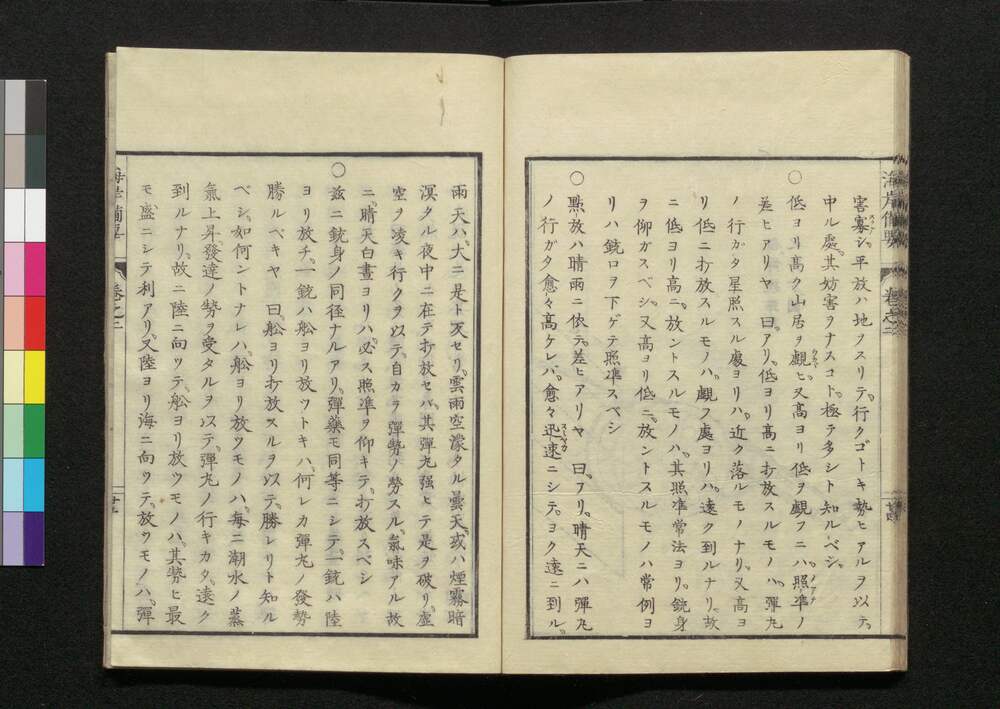 害寡シ平放ハ地ヲスリテ行クゴトキ勢ヒアルヲ以テ
中ル處其妨害ヲナスコト極テ多シト知ルベシ
○低ヨリ高ク山居ヲ覷ヒ又高ヨリ低ヲ覷フニハ照準ノ
差ヒアリヤ 曰アリ低ヨリ高ニ打放スルモノハ彈丸
ノ行ガタ星照スル處ヨリハ近ク落ルモノナリ又高ヨ
リ低ニ打放スルモノハ覷フ處ヨリハ遠ク到ルナリ故
ニ低ヨリ高ニ放ントスルモノハ其照準常法ヨリ銃身
ヲ仰ガスベシ又高ヨリ低ニ放ントスルモノハ常例ヨ
リハ銃口ヲ下ゲテ照準スベシ
○點放ハ晴雨ニ依テ差ヒアリヤ 曰アリ晴天ニハ彈丸
ノ行ガタ愈々高ケレバ愈々迅速ニシテヨク遠ニ到ル
雨天ハ大ニ是ト反セリ雲雨空濛タル曇天或ハ煙霧暗
溟タル夜中ニ在テ打放セバ其彈丸强ヒテ是ヲ破リ虚
空ヲ凌キ行クヲ以テ自カラ彈勢ノ勞スル氣味アル故
ニ晴天白晝ヨリハ必ス照準ヲ仰キテ打放スベシ
○玆ニ銃身ノ同径ナルアリ彈藥モ同等ニシテ一銃ハ陸
ヨリ放チ一銃ハ舩ヨリ放ツトキハ何レカ彈丸ノ發勢
勝ルベキヤ 曰舩ヨリ打放スルヲ以テ勝レリト知ル
ベシ如何ントナレハ舩ヨリ放ツモノハ毎ニ潮水ノ蒸
氣上昇發達ノ勢ヲ受タルヲ以テ彈丸ノ行キカタ遠ク
到ルナリ故ニ陸ニ向ツテ舩ヨリ放ツモノハ其勢ヒ最
モ盛ニシテ利アリ又陸ヨリ海ニ向ツテ放ツモノハ彈